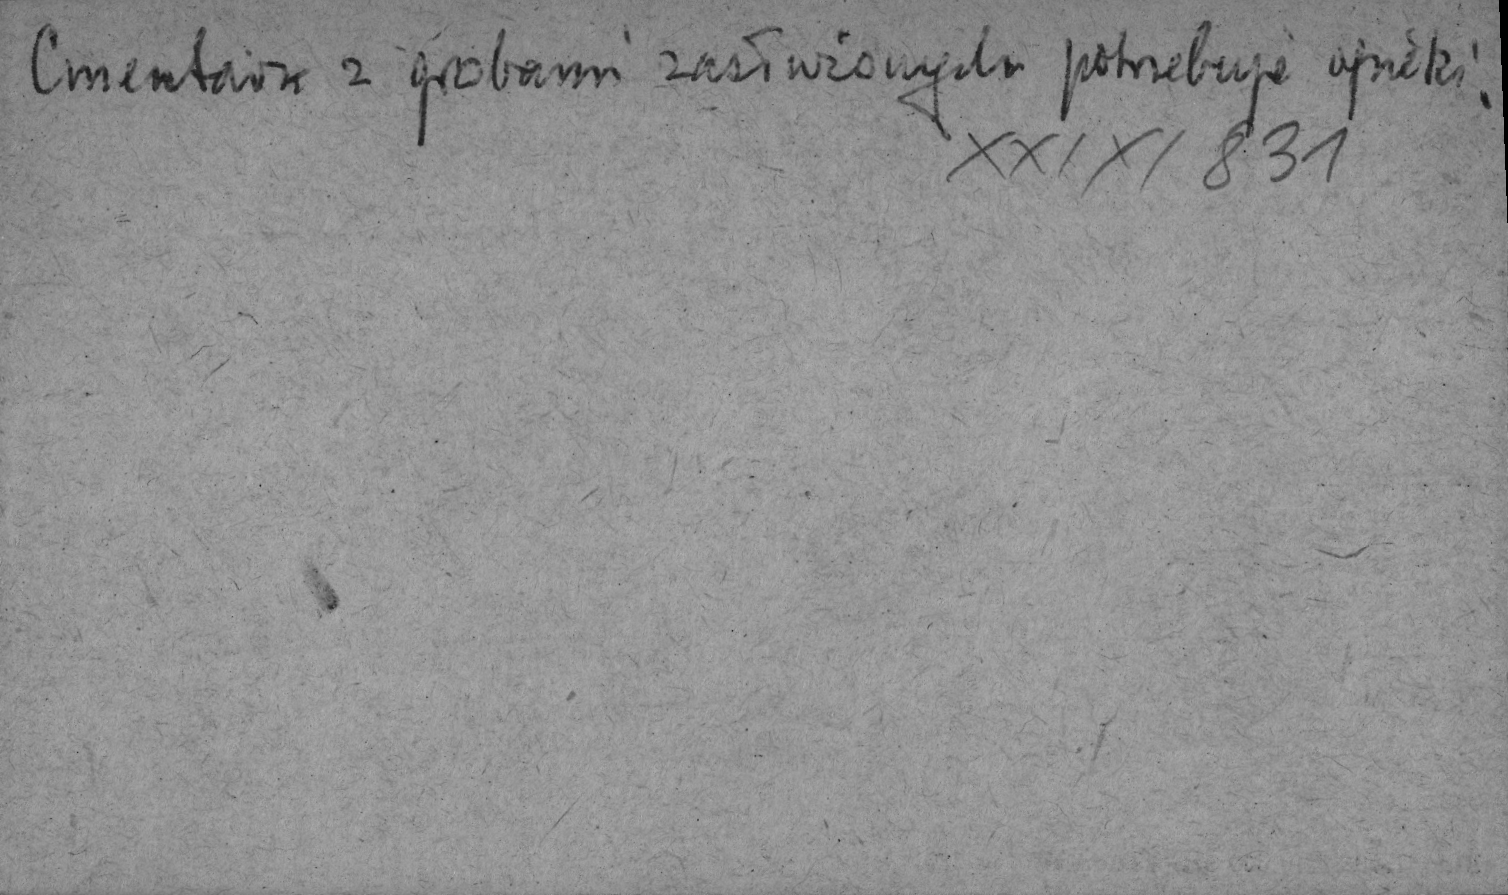 Cmentarz z grobami zasłużonych potrzebuje opieki.
XXIXI 831